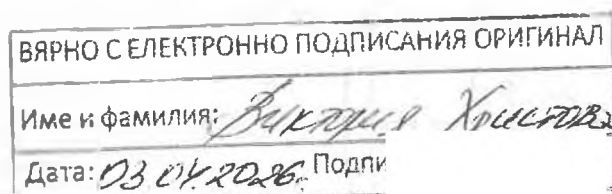 ВЯРНО С ЕЛЕКТРОННО ПОДПИСАНИЯ ОРИГИНАЛ
Име и фамилия: Виктория Христова
Дата: 03.04.2026 Подпи